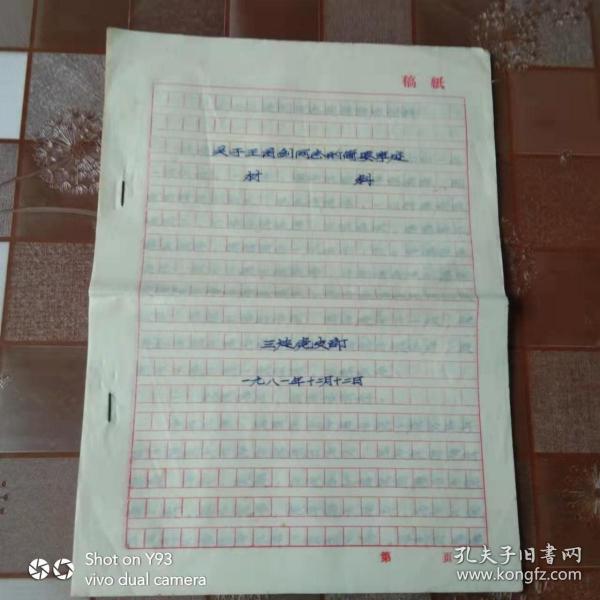 稿 纸
关于王国剑同志的简要事迹
材 料
三连党支部
一九八一年十二月十二日
第 页
Shot on Y93
vivo dual camera
孔夫子旧书网
www.kongfz.com